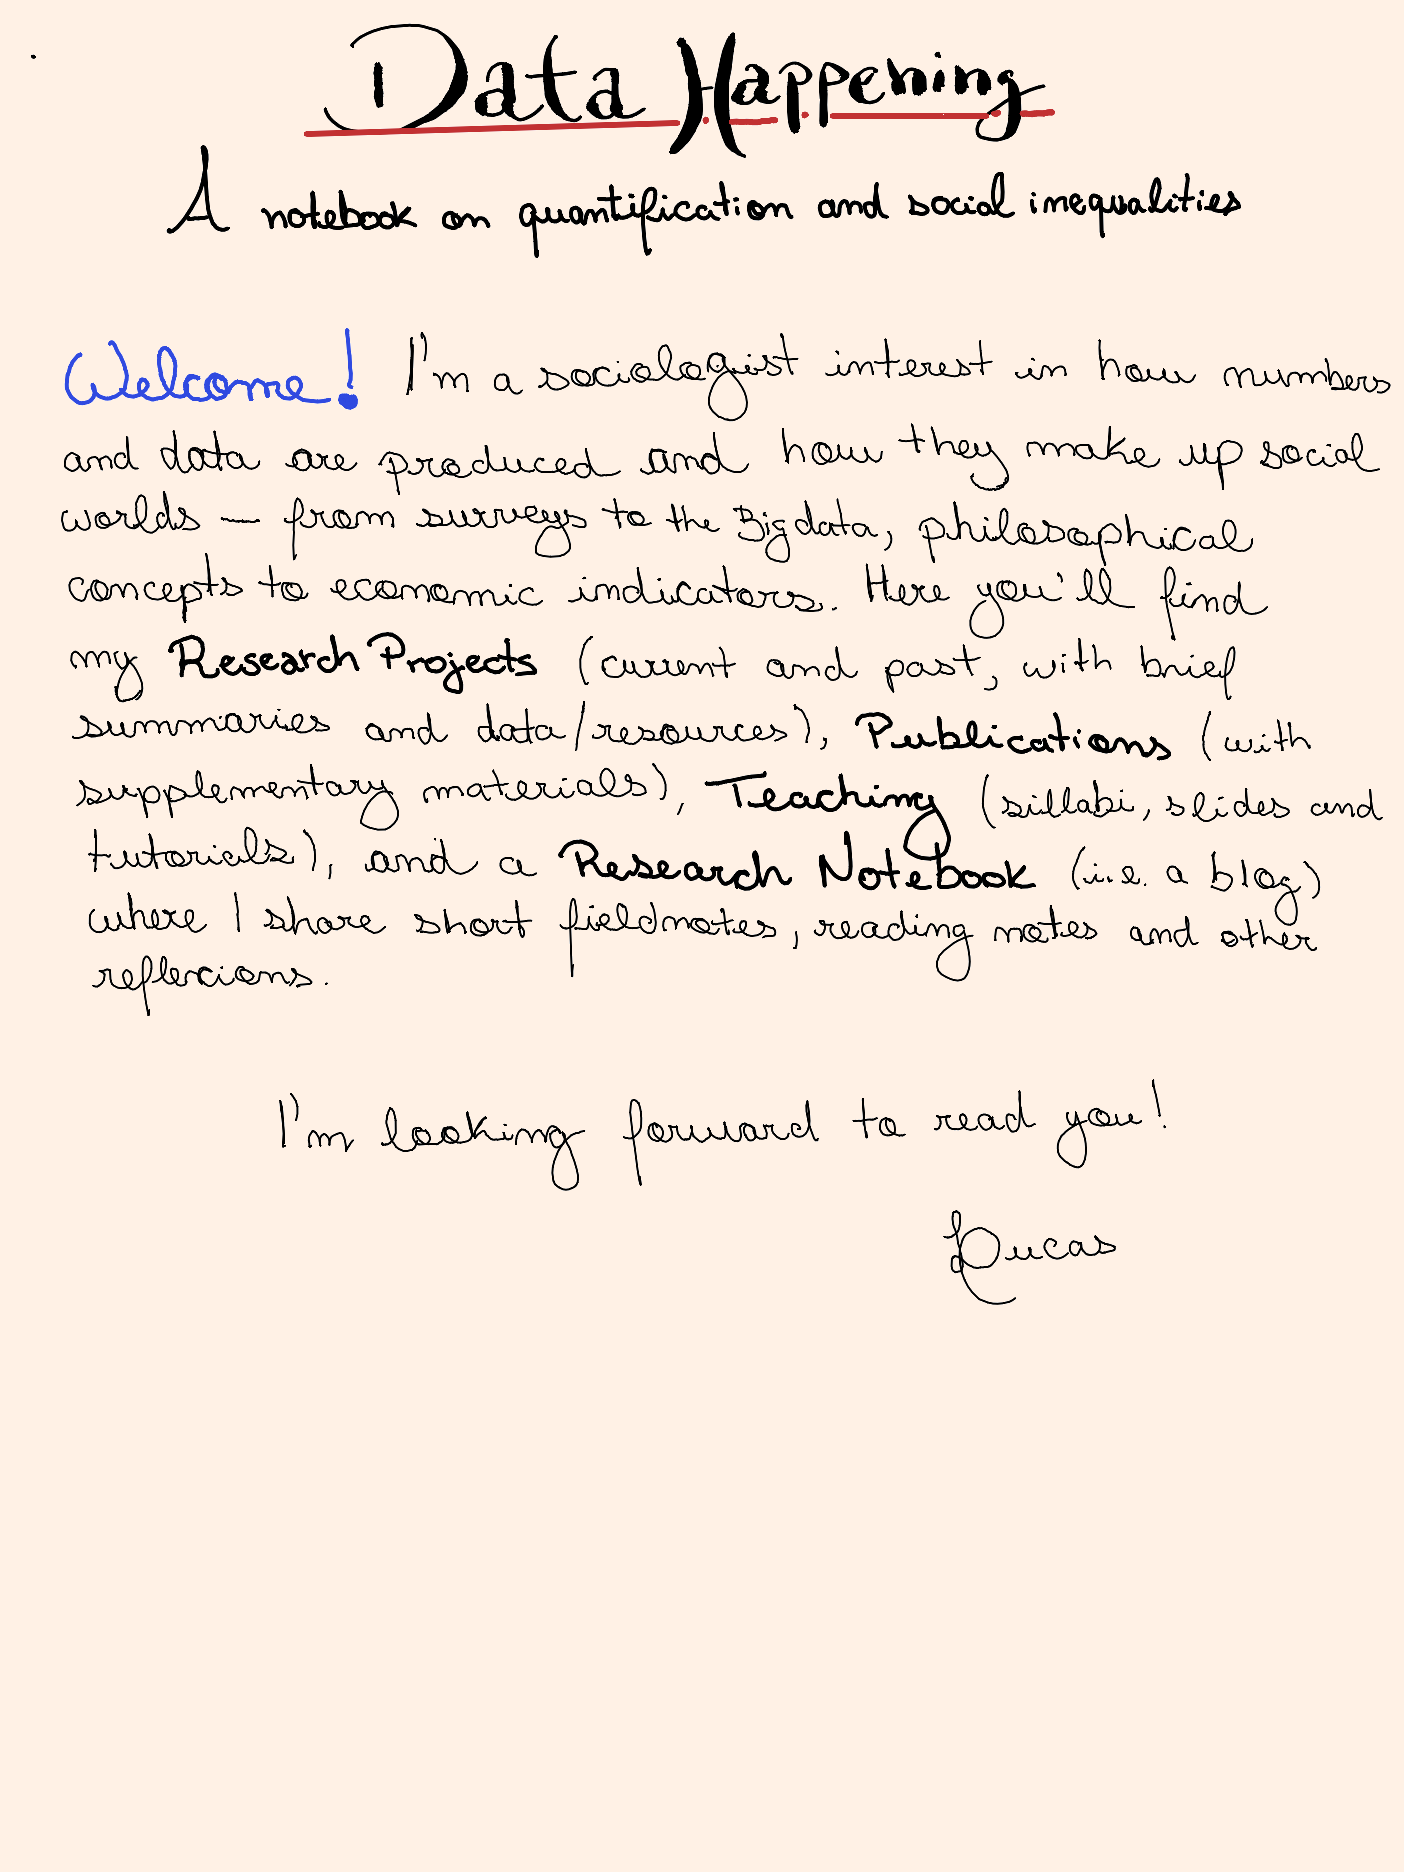 Data Happening
A notebook on quantification and social inequalities
Welcome! I'm a sociologist interest in how numbers
and data are produced and how they make up social
worlds — from surveys to the Big data, philosophical
concepts to economic indicators. Here you'll find
my Research Projects (current and past, with brief
summaries and data/resources), Publications (with
supplementary materials), Teaching (sillabi, slides and
tutorials), and a Research Notebook (i.e. a blog)
where I share short fieldnotes, reading notes and other
reflexions.
I'm looking forward to read you!
Lucas